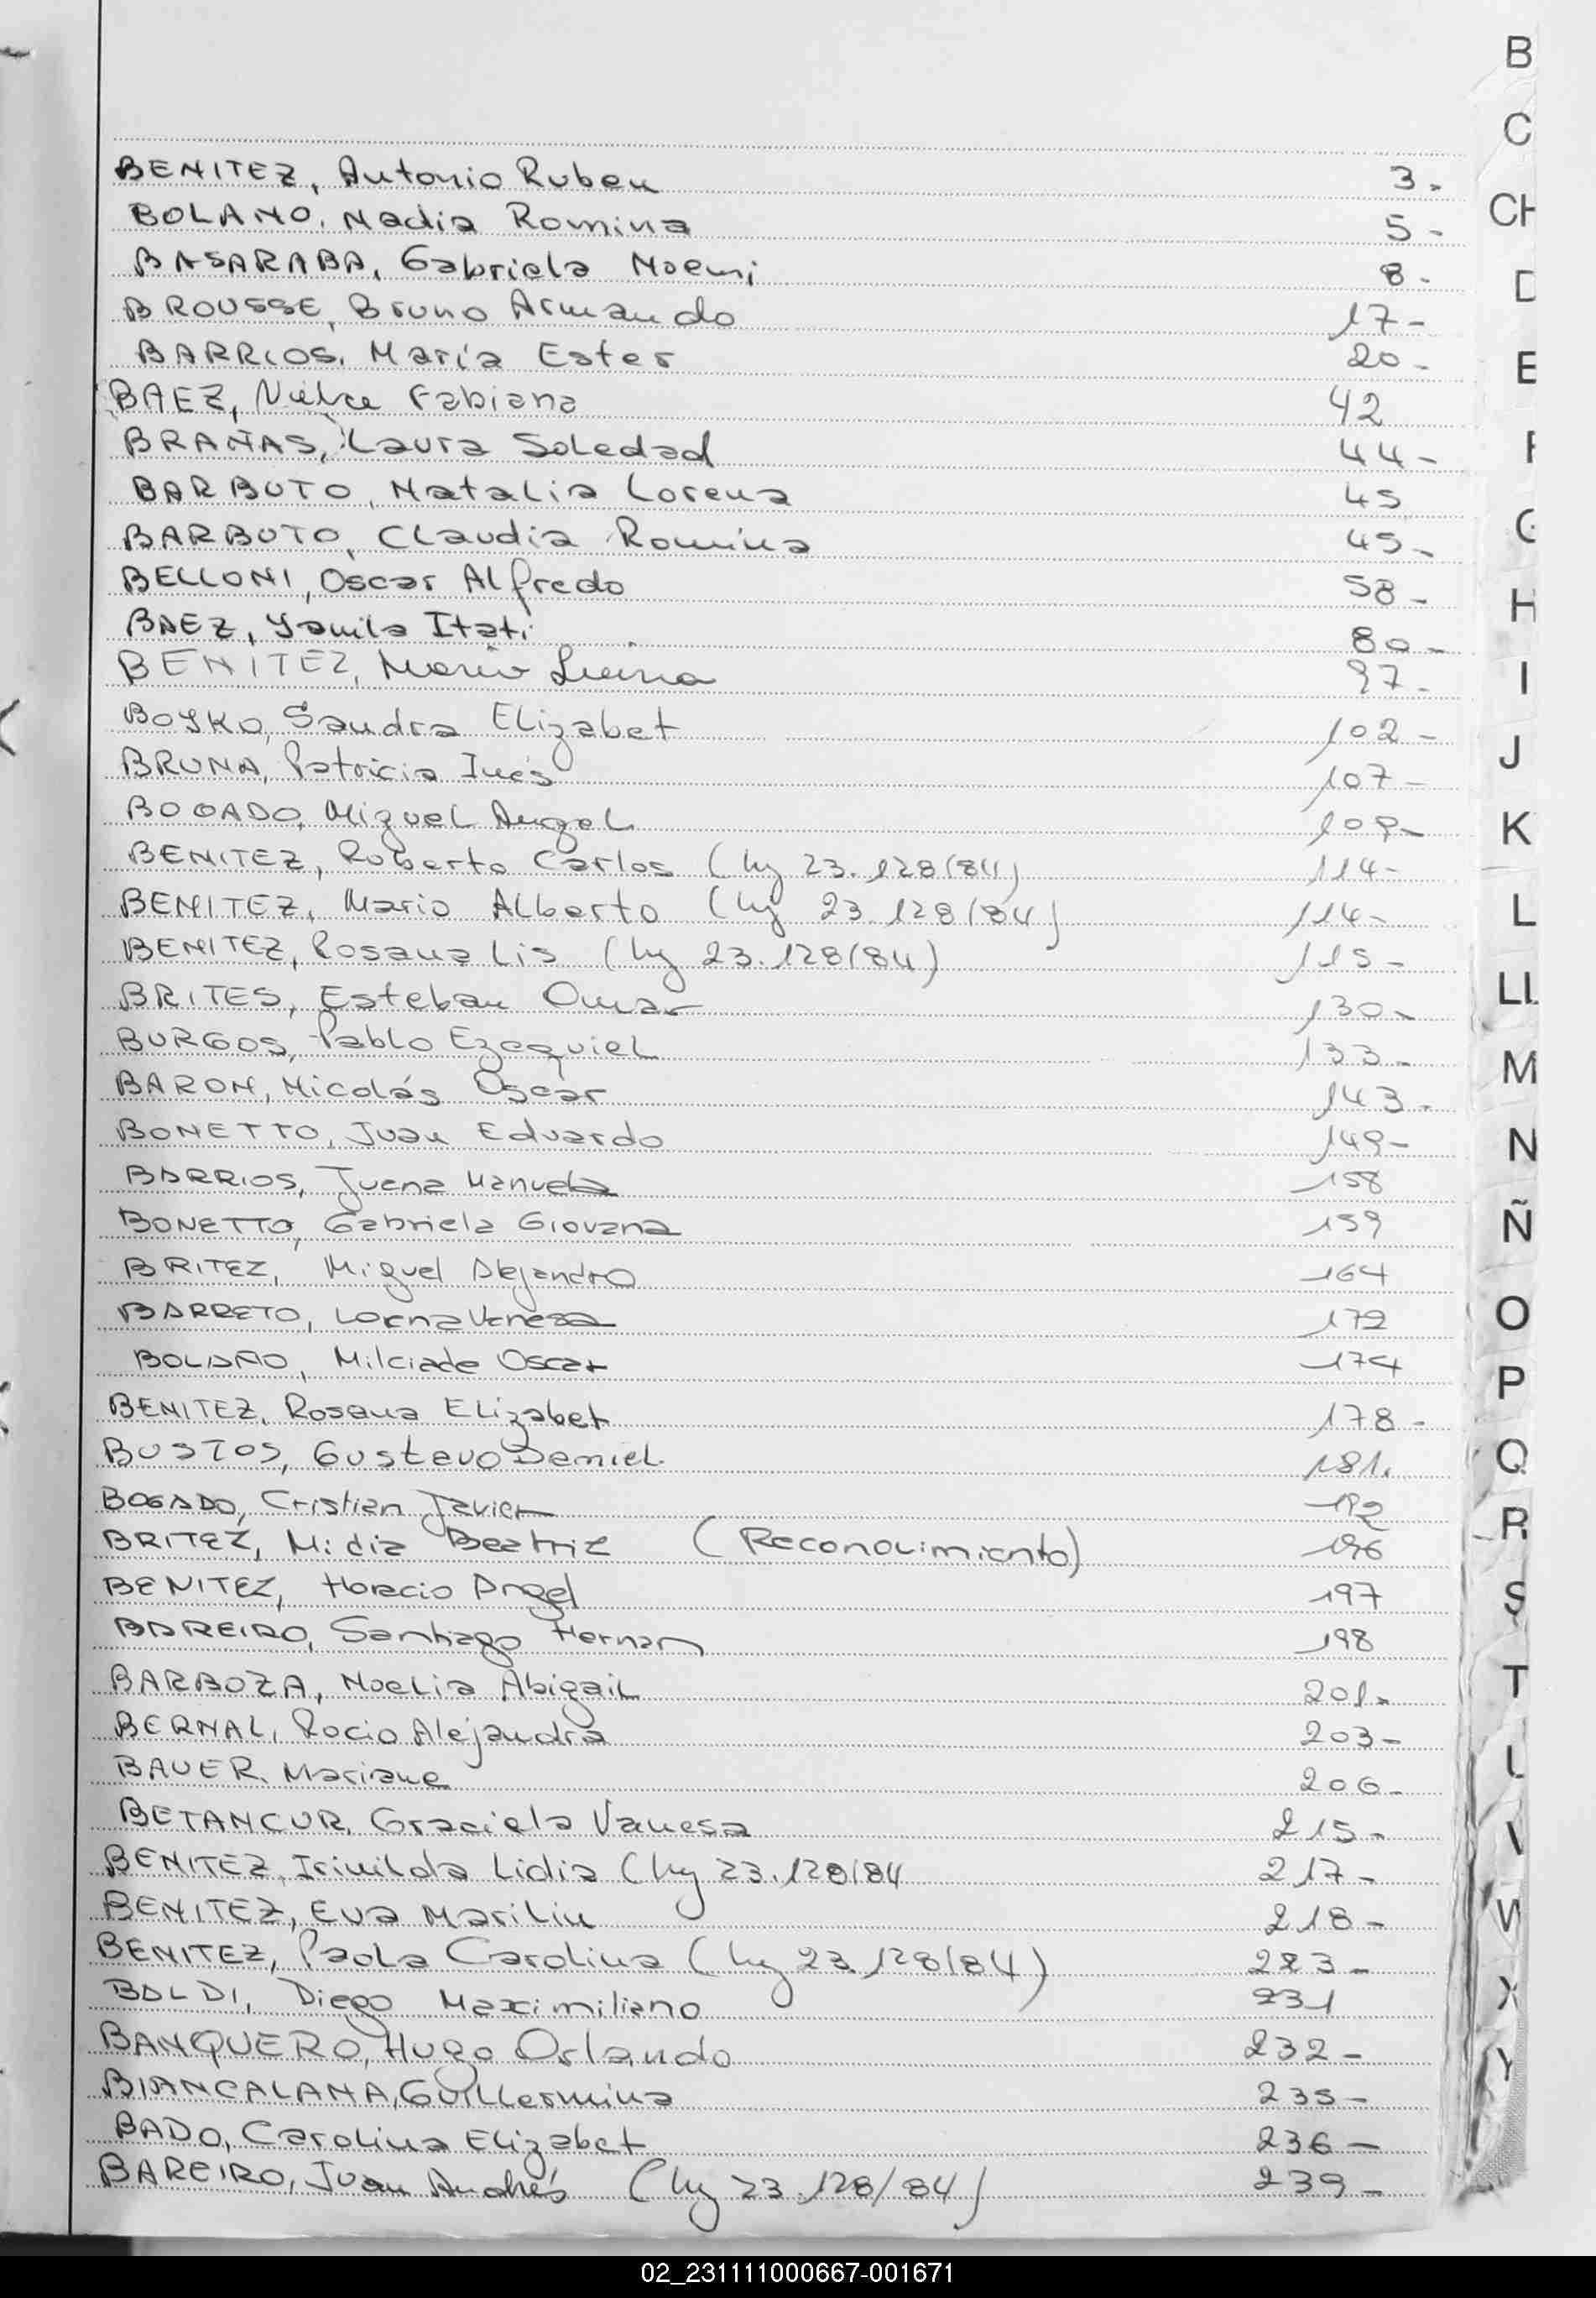 BENITEZ, Antonio Ruben 3.
BOLANO, Nadia Romina 5-
BASARABA, Gabriela Noemi 8.
BROUSSE, Bruno Armando 17-
BARRIOS, María Ester 20-
BAEZ, Fabiana 42
BRAÑAS, Laura Soledad 44-
BARBUTO, Natalia Lorena 45
BARBUTO, Claudia Romina 45-
BELLONI, Oscar Alfredo 58-
BAEZ, Yamila Itati 80-
BENITEZ, 97-
BOYKO, Sandra Elizabet 102-
BRUNA, Patricia Inés 107-
BOGADO, Miguel Angel 109-
BENITEZ, Roberto Carlos (ley 23.128/84) 114-
BENITEZ, Mario Alberto (ley 23.128/84) 114-
BENITEZ, Rosana Lis (ley 23.128/84) 115-
BRITES, Esteban Omar 130-
BURGOS, Pablo Ezequiel 133-
BARON, Nicolás Oscar 143-
BONETTO, Juan Eduardo 149-
BARRIOS, Juana Manuela 158
BONETTO, Gabriela Giovana 159
BRITEZ, Miguel Alejandro 164
BARRETO, Lorna Vanesa 172
BOLAÑO, Milciade Oscar 174
BENITEZ, Rosana Elizabet 178-
BUSTOS, Gustavo Daniel. 181.
BOGADO, Cristian Javier 192
BRITEZ, Nidia Beatriz (Reconocimiento) 196
BENITEZ, Horacio Angel 197
BAREIRO, Santiago Hernan 198
BARBOZA, Noelia Abigail 201-
BERNAL, Rocio Alejandra 203-
BAUER, Mariane 206-
BETANCUR, Graciela Vanesa 215-
BENITEZ, Irinilda Lidia (ley 23.128/84 217-
BENITEZ, Eva Marilin 218-
BENITEZ, Paola Carolina (ley 23.128/84) 223-
BALDI, Diego Maximiliano 231
BANQUERO, Hugo Orlando 232-
BIANCALANA, Guillermina 235-
BADO, Carolina Elizabet 236-
BAREIRO, Juan Andrés (ley 23.128/84) 239-
B
C
CH
D
E
F
G
H
I
J
K
L
LL
M
N
Ñ
O
P
Q
R
S
T
U
V
W
X
Y
02_231111000667-001671